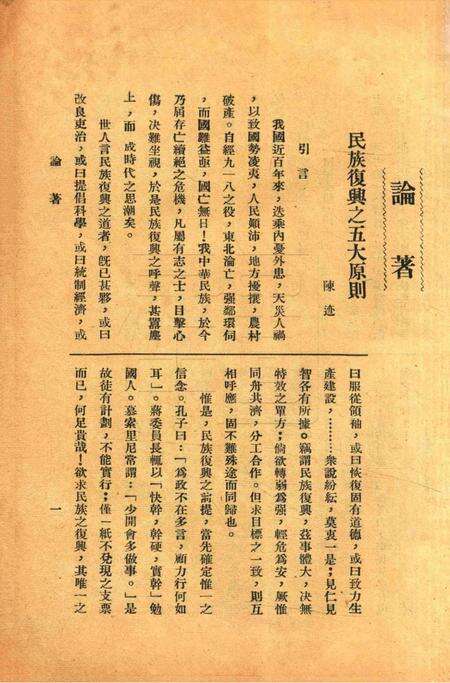 論著
民族復興之五大原則
陳迹
引言
我國近百年來，迭乘內憂外患，天災人禍
，以致國勢凌夷，人民顛沛，地方擾攘，農村
破產。自經九一八之役，東北淪亡，强鄰環伺
，而國難益亟，國亡無日！我中華民族，於今
乃屆存亡續絕之危機，凡屬有志之士，目擊心
傷，決難坐視，於是民族復興之呼聲，甚囂塵
上，而 成時代之思潮矣。
世人言民族復興之道者，旣已甚夥，或曰
改良吏治，或曰提倡科學，或曰統制經濟，或
論著
曰服從領袖，或曰恢復固有道德，或曰致力生
產建設，………衆說紛紜，莫衷一是；見仁見
智各有所據。竊謂民族復興，茲事體大，決無
特效之單方；倘欲轉弱爲强，輕危爲安，厥惟
同舟共濟，分工合作。但求目標之一致，則互
相呼應，固不難殊途而同歸也。
惟是，民族復興之前提，當先確定惟一之
信念。孔子曰：「爲政不在多言，顧力行何如
耳」。蔣委員長輒以「快幹，幹硬，實幹」勉
國人。慕索里尼常謂：「少開會多做事。」是
故徒有計劃，不能實行；僅一紙不兌現之支票
而已，何足貴哉！欲求民族之復興，其唯一之
一